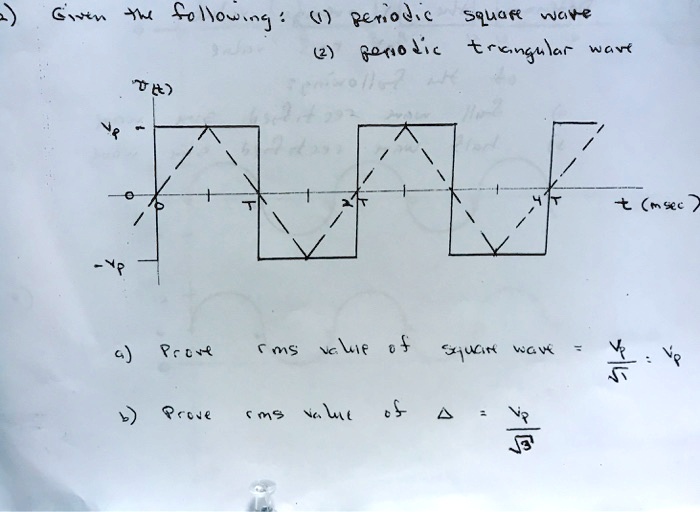 2) Given the following: (1) periodic square wave
(2) periodic triangular wave
v(t)
Vp
0
0 T 2T 4T t (msec)
-Vp
a) Prove rms value of square wave = Vp/√1 = Vp
b) Prove rms value of Δ = Vp/√3